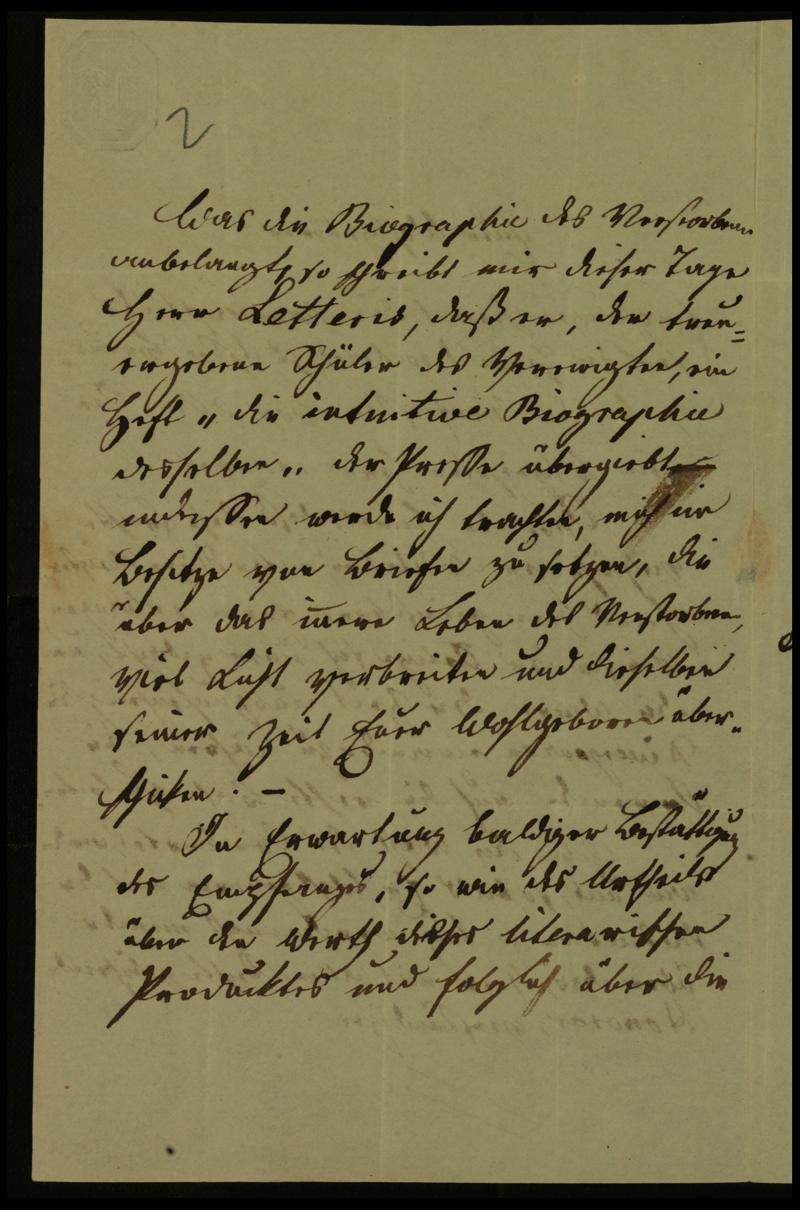 2
Was die Biographie des Verstorbenen
anbelangt, so schreibt mir dieser Tage
Herr Letteris, daß er, der treu=
ergebene Schüler des Verewigten, ein
Heft „die intuitive Biographie
desselben„ der Presse übergiebt
indessen werde ich trachten, mich in
Besitze von Briefen zu setzen, die
über das innere Leben des Verstorbenen,
viel Licht verbreiten und dieselben
seiner Zeit Euer Wohlgeboren über„
schicken. –
In Erwartung baldiger Bestättigung
des Empfanges, so wie des Urtheils
über den Werth dieses literarischen
Producktes und folglich über die